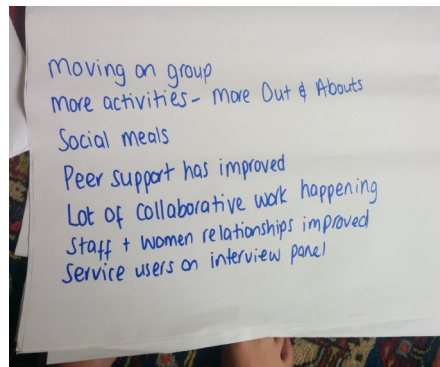 Moving on group
More activities - More Out & Abouts
Social meals
Peer support has improved
Lot of collaborative work happening
Staff + women relationships improved
Service users on interview panel